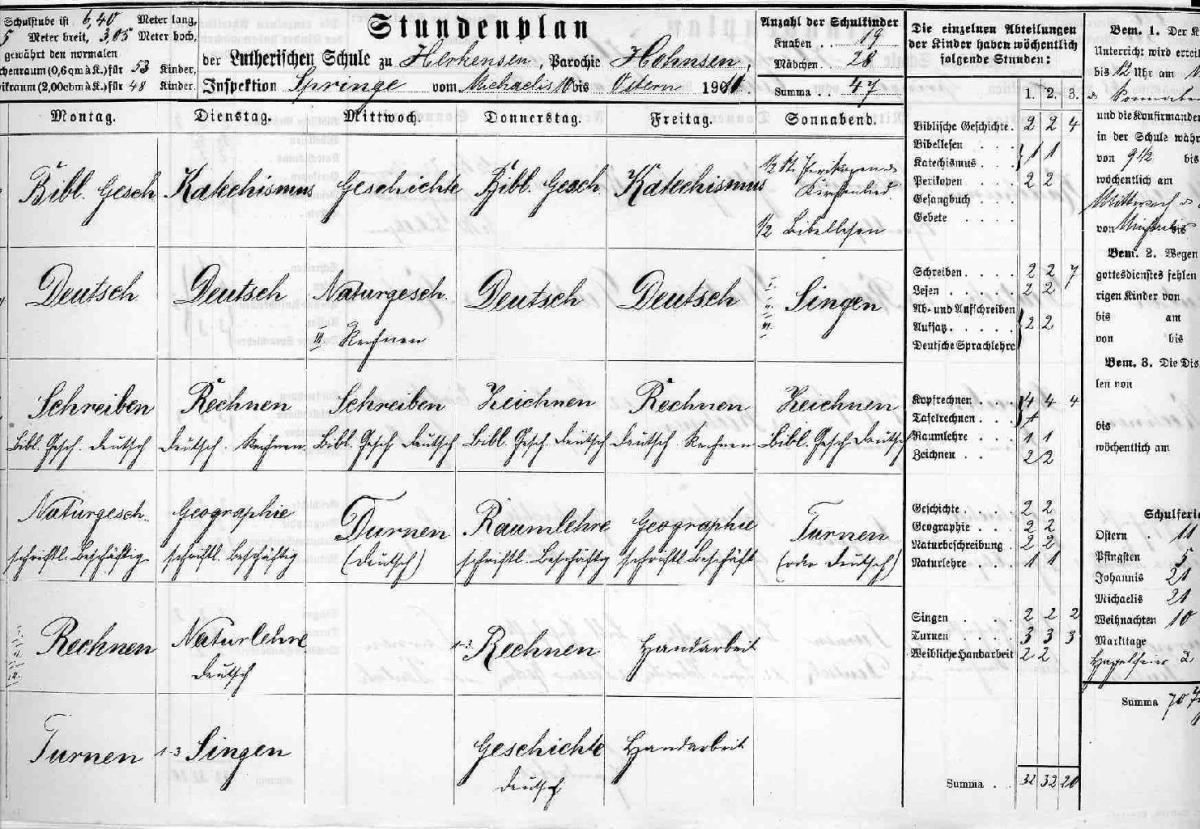 Schulstube ist 6,40 Meter lang,
5 Meter breit, 3,05 Meter hoch,
gewährt den normalen
chenraum (0,6 qm à K.) für 53 Kinder,
ikraum (2,00 cbm à K.) für 48 Kinder.
Stundenplan
der Lutherischen Schule zu Herkensen Parochie Hohnsen
Inspektion Springe vom Michaelis 10 bis Ostern 1911
Anzahl der Schulkinder
Knaben . . 19
Mädchen . . 28
Summa . . 47
Die einzelnen Abteilungen
der Kinder haben wöchentlich
folgende Stunden:
1. 2. 3.
Bem. 1. Der K
Unterricht wird erteil
bis 12 Uhr am
und die Konfirmanden
in der Schule wäh
von 9 1/2 bis
wöchentlich am
Mittwoch
von bis
Bem. 2. Wegen
gottesdienstes fehlen
rigen Kinder von
bis am
von bis
Bem. 3. Die Dis
len von
bis
wöchentlich am
Montag. Dienstag. Mittwoch. Donnerstag. Freitag. Sonnabend.
Bibl. Gesch Katechismus Geschichte Bibl. Gesch Katechismus
Kirchenlied
1/2 Bibellesen
Deutsch Deutsch Naturgesch. Deutsch Deutsch Singen
III Rechnen
Schreiben Rechnen Schreiben Zeichnen Rechnen Zeichnen
Bibl. Gesch. deutsch deutsch. Rechnen Bibl. Gesch deutsch Bibl. Gesch deutsch deutsch Rechnen Bibl. Gesch deutsch
Naturgesch. Geographie Turnen Raumlehre Geographie Turnen
schriftl. Beschäftig schriftl. Beschäftig (deutsch) schriftl. Beschäftig schriftl. Beschäft (oder deutsch)
Rechnen Naturlehre 1-3 Rechnen Handarbeit
deutsch
Turnen 1-3 Singen Geschichte Handarbeit
deutsch
Biblische Geschichte . 2 2 4
Bibellesen
Katechismus . . . 1 1
Perikopen . . . 2 2
Gesangbuch . .
Gebete . . . .
Schreiben . . . . 2 2 7
Lesen . . . . . 2 2
Ab- und Aufschreiben
Aufsatz . . . . 2 2
Deutsche Sprachlehre
Kopfrechnen . . . 4 4 4
Tafelrechnen . . .
Raumlehre . . . 1 1
Zeichnen . . . 2 2
Geschichte . . . . 2 2
Geographie . . . 2 2
Naturbeschreibung . 2 2
Naturlehre . . . 1 1
Singen . . . . 2 2 2
Turnen . . . . 3 3 3
Weibliche Handarbeit 2 2
Summa . . 32 32 20
Schulferie
Ostern . 11
Pfingsten 5
Johannis 21
Michaelis 21
Weihnachten 10
Markttage
2
Summa 70